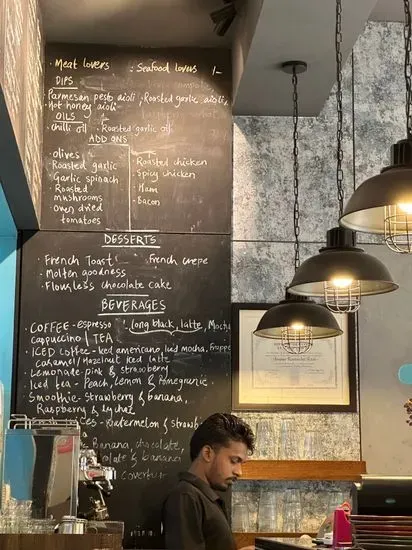 · Meat lovers : Seafood lovers 1-
DIPS
Parmesan pesto aioli, Roasted garlic aioli,
· Hot honey aioli
OILS
chilli oil · Roasted garlic oil
ADD ONS
· Olives · Roasted chicken
Roasted garlic · Spicy chicken
Garlic spinach · Ham
· Roasted mushrooms · Bacon
· oven dried
tomatoes
DESSERTS
· French Toast · French crepe
· Molten goodness
· Flourless chocolate cake
BEVERAGES
· COFFEE - espresso, Long black, latte, Mocha
cappuccino / TEA
· ICED coffee - Iced americano, Iced mocha, Frappe
caramel / Hazelnut iced latte
· Lemonade - pink & strawberry
Iced tea - Peach, Lemon & Pomegranate
Smoothie - strawberry & banana,
Raspberry & lychee
- Watermelon &
Banana, chocolate,